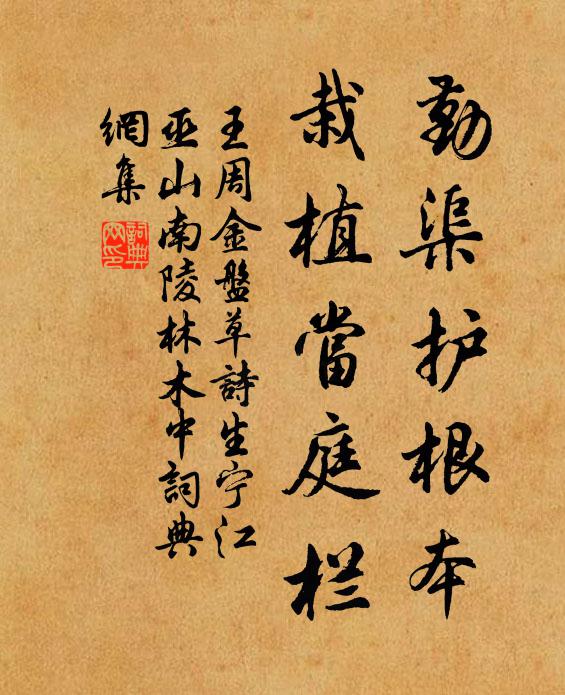 勤渠护根本
栽植當庭栏
王周金盤草詩生宁江
巫山南陵林木中詞典
網集
詞典
网印